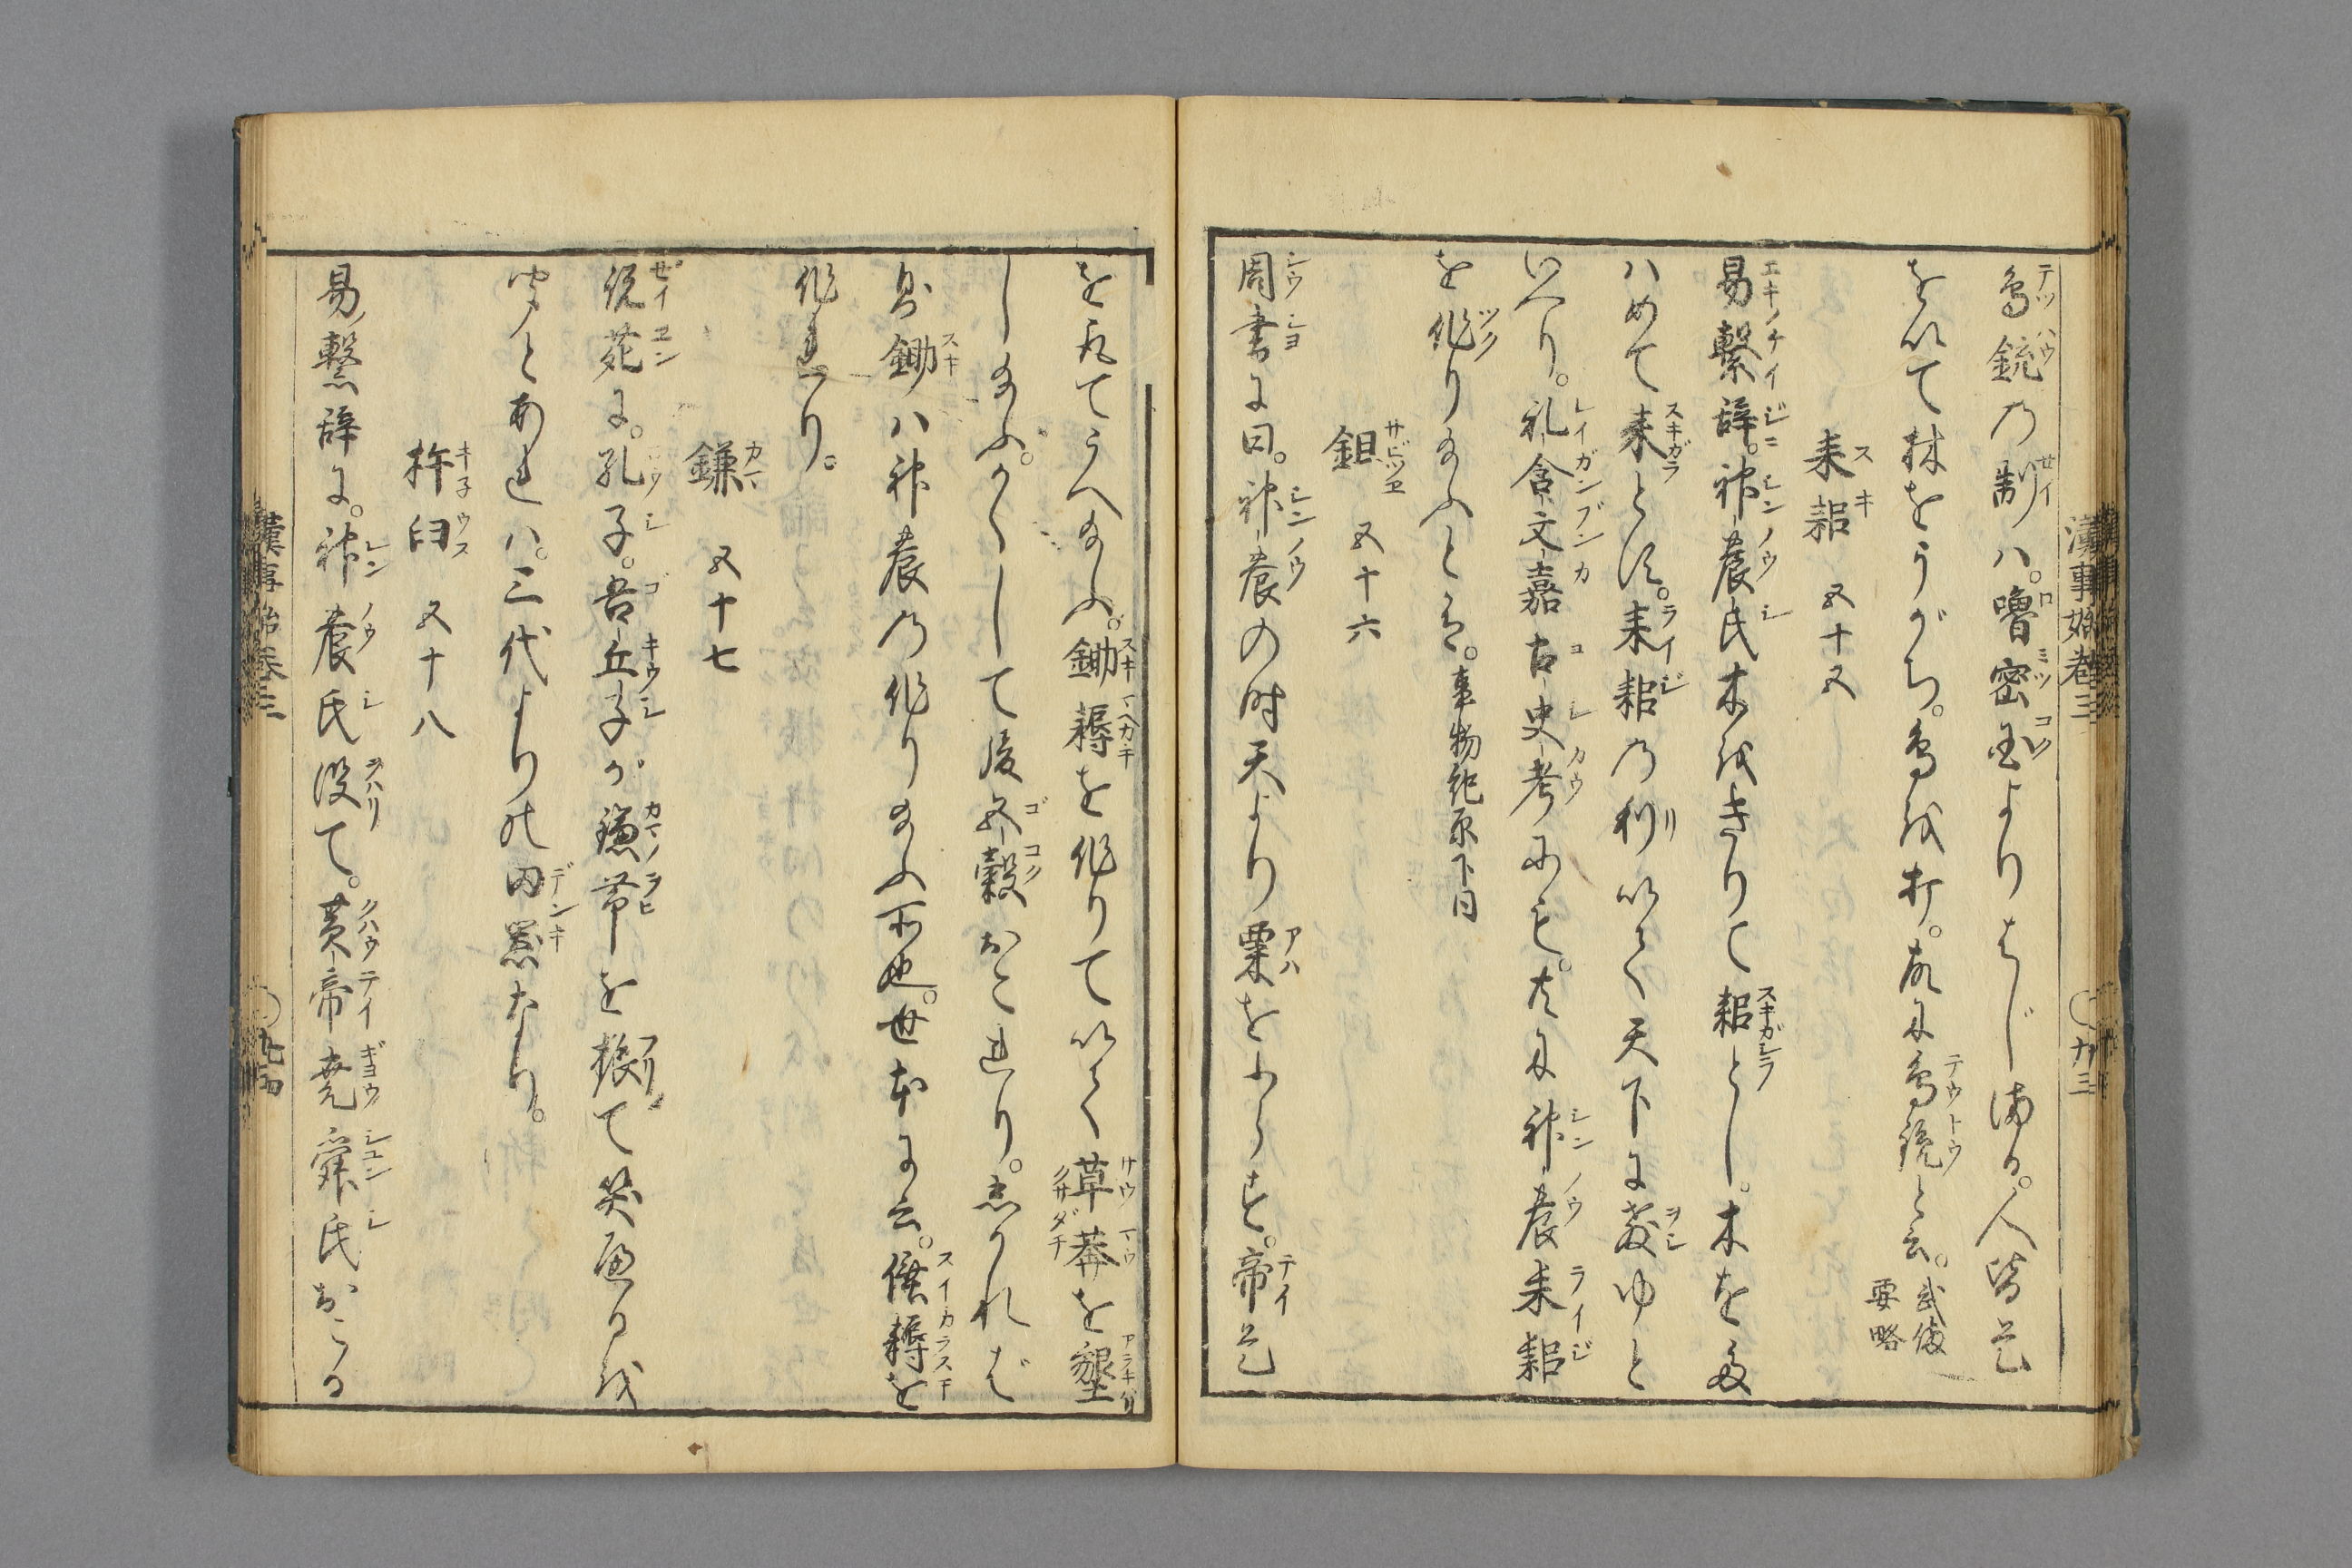 鳥銃の制ハ。嚕密国よりはじまる。人皆是
を以て林をうがち。鳥を打。故に鳥銃と云。武備要略
耒耜　五十五
易繋辞。神農氏木をきりて耜とし。木をたハめて
耒とす。耒耜の利以て天下に教ゆと
いへり。礼含文嘉古史考にも。共に神農耒耜
を作り給ふと有。事物紀原下同
鉏　五十六
周書に曰。神農の時天より粟をふらす。帝是
漢事始巻三
〇九十三
を取てうへ給ふ。鋤耨を作りて以て草莽を墾
し給ふ。かくして後五穀おこれり。しかれば
則鋤ハ神農の作り給ふ所也。世本に云。倕耨を
作れり。
鎌　五十七
説苑に。孔子。吾丘子が鎌帯を擁て哭するを
聞とあれハ。三代よりの田器なり。
杵臼　五十八
易繋辞に。神農氏没て。黄帝堯舜氏おこる
漢事始巻三
〇九十四